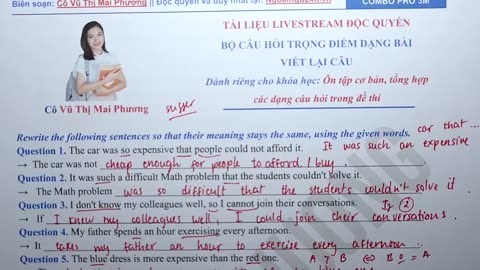 Biên soạn: Cô Vũ Thị Mai Phương || Độc quyền và duy nhất tại: Ngoaingu24h.vn
COMBO PRO 3M
TÀI LIỆU LIVESTREAM ĐỘC QUYỀN
BỘ CÂU HỎI TRỌNG ĐIỂM DẠNG BÀI
VIẾT LẠI CÂU
Dành riêng cho khóa học: Ôn tập cơ bản, tổng hợp
các dạng câu hỏi trong đề thi
Cô Vũ Thị Mai Phương
car that ...
Rewrite the following sentences so that their meaning stays the same, using the given words.
It was such an expensive
Question 1. The car was so expensive that people could not afford it.
→ The car was not cheap enough for people to afford / buy
Question 2. It was such a difficult Math problem that the students couldn't solve it.
→ The Math problem was so difficult that the students couldn't solve it.
Question 3. I don't know my colleagues well, so I cannot join their conversations.
If ②
→ If I knew my colleagues well, I could join their conversations.
Question 4. My father spends an hour exercising every afternoon.
→ It takes my father an hour to exercise every afternoon.
Question 5. The blue dress is more expensive than the red one.